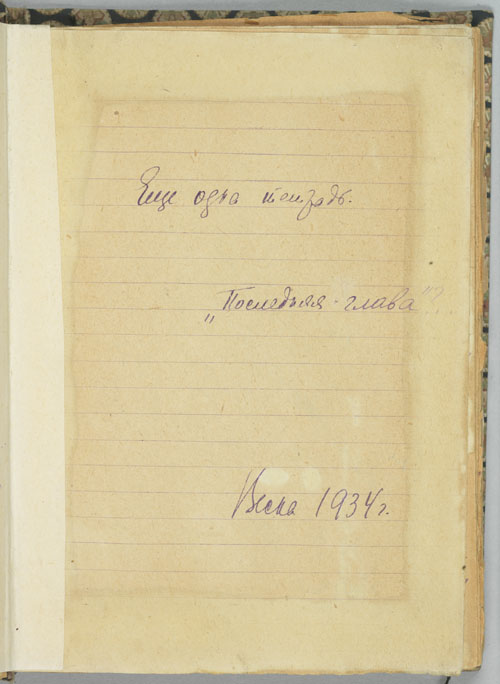 Еще одна тетрадь.
„Последняя глава"?
Весна 1934 г.